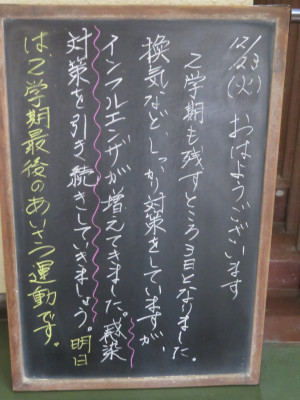 12/23(火) おはようございます
2学期も残すところ3日となりました。
換気など、しっかり対策をしていますが、
インフルエンザが増えてきました。感染
対策を引き続きしていきましょう。明日
は2学期最後のあいさつ運動です。